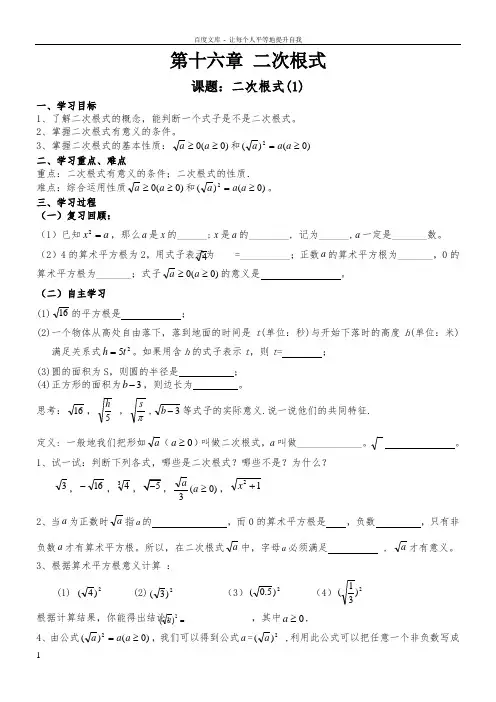 百度文库 - 让每个人平等地提升自我
第十六章 二次根式
课题：二次根式(1)
一、学习目标
1、了解二次根式的概念，能判断一个式子是不是二次根式。
2、掌握二次根式有意义的条件。
3、掌握二次根式的基本性质：√a ≥ 0(a ≥ 0) 和 (√a)² = a(a ≥ 0)
二、学习重点、难点
重点：二次根式有意义的条件；二次根式的性质．
难点：综合运用性质 √a ≥ 0(a ≥ 0) 和 (√a)² = a(a ≥ 0)。
三、学习过程
（一）复习回顾：
（1）已知 x² = a，那么 a 是 x 的______；x 是 a 的________，记为______，a 一定是_______数。
（2）4的算术平方根为2，用式子表示为 √4 =__________；正数 a 的算术平方根为_______，0的
算术平方根为_______；式子 √a ≥ 0(a ≥ 0) 的意义是 。
（二）自主学习
(1) √16 的平方根是 ；
(2)一个物体从高处自由落下，落到地面的时间是 t(单位：秒)与开始下落时的高度 h(单位：米)
满足关系式 h = 5t²。如果用含 h 的式子表示 t，则 t= ；
(3)圆的面积为S，则圆的半径是 ；
(4)正方形的面积为 b − 3，则边长为 。
思考：√16，√(h/5)，√(s/π)，√(b − 3) 等式子的实际意义.说一说他们的共同特征.
定义：一般地我们把形如 √a（a ≥ 0）叫做二次根式，a 叫做_____________。√ 。
1、试一试：判断下列各式，哪些是二次根式？哪些不是？为什么？
√3，−√16，∛4，√−5，√a/3 (a ≥ 0)，√(x² + 1)
2、当 a 为正数时 √a 指 a 的 ，而0的算术平方根是 ，负数 ，只有非
负数 a 才有算术平方根。所以，在二次根式 √a 中，字母 a 必须满足 ，√a 才有意义。
3、根据算术平方根意义计算 ：
(1) (√4)² (2) (√3)² （3）(√0.5)² （4）(√(1/3))²
根据计算结果，你能得出结论： (√a)² = ，其中 a ≥ 0，
4、由公式 (√a)² = a(a ≥ 0)，我们可以得到公式 a = (√a)² ,利用此公式可以把任意一个非负数写成
1